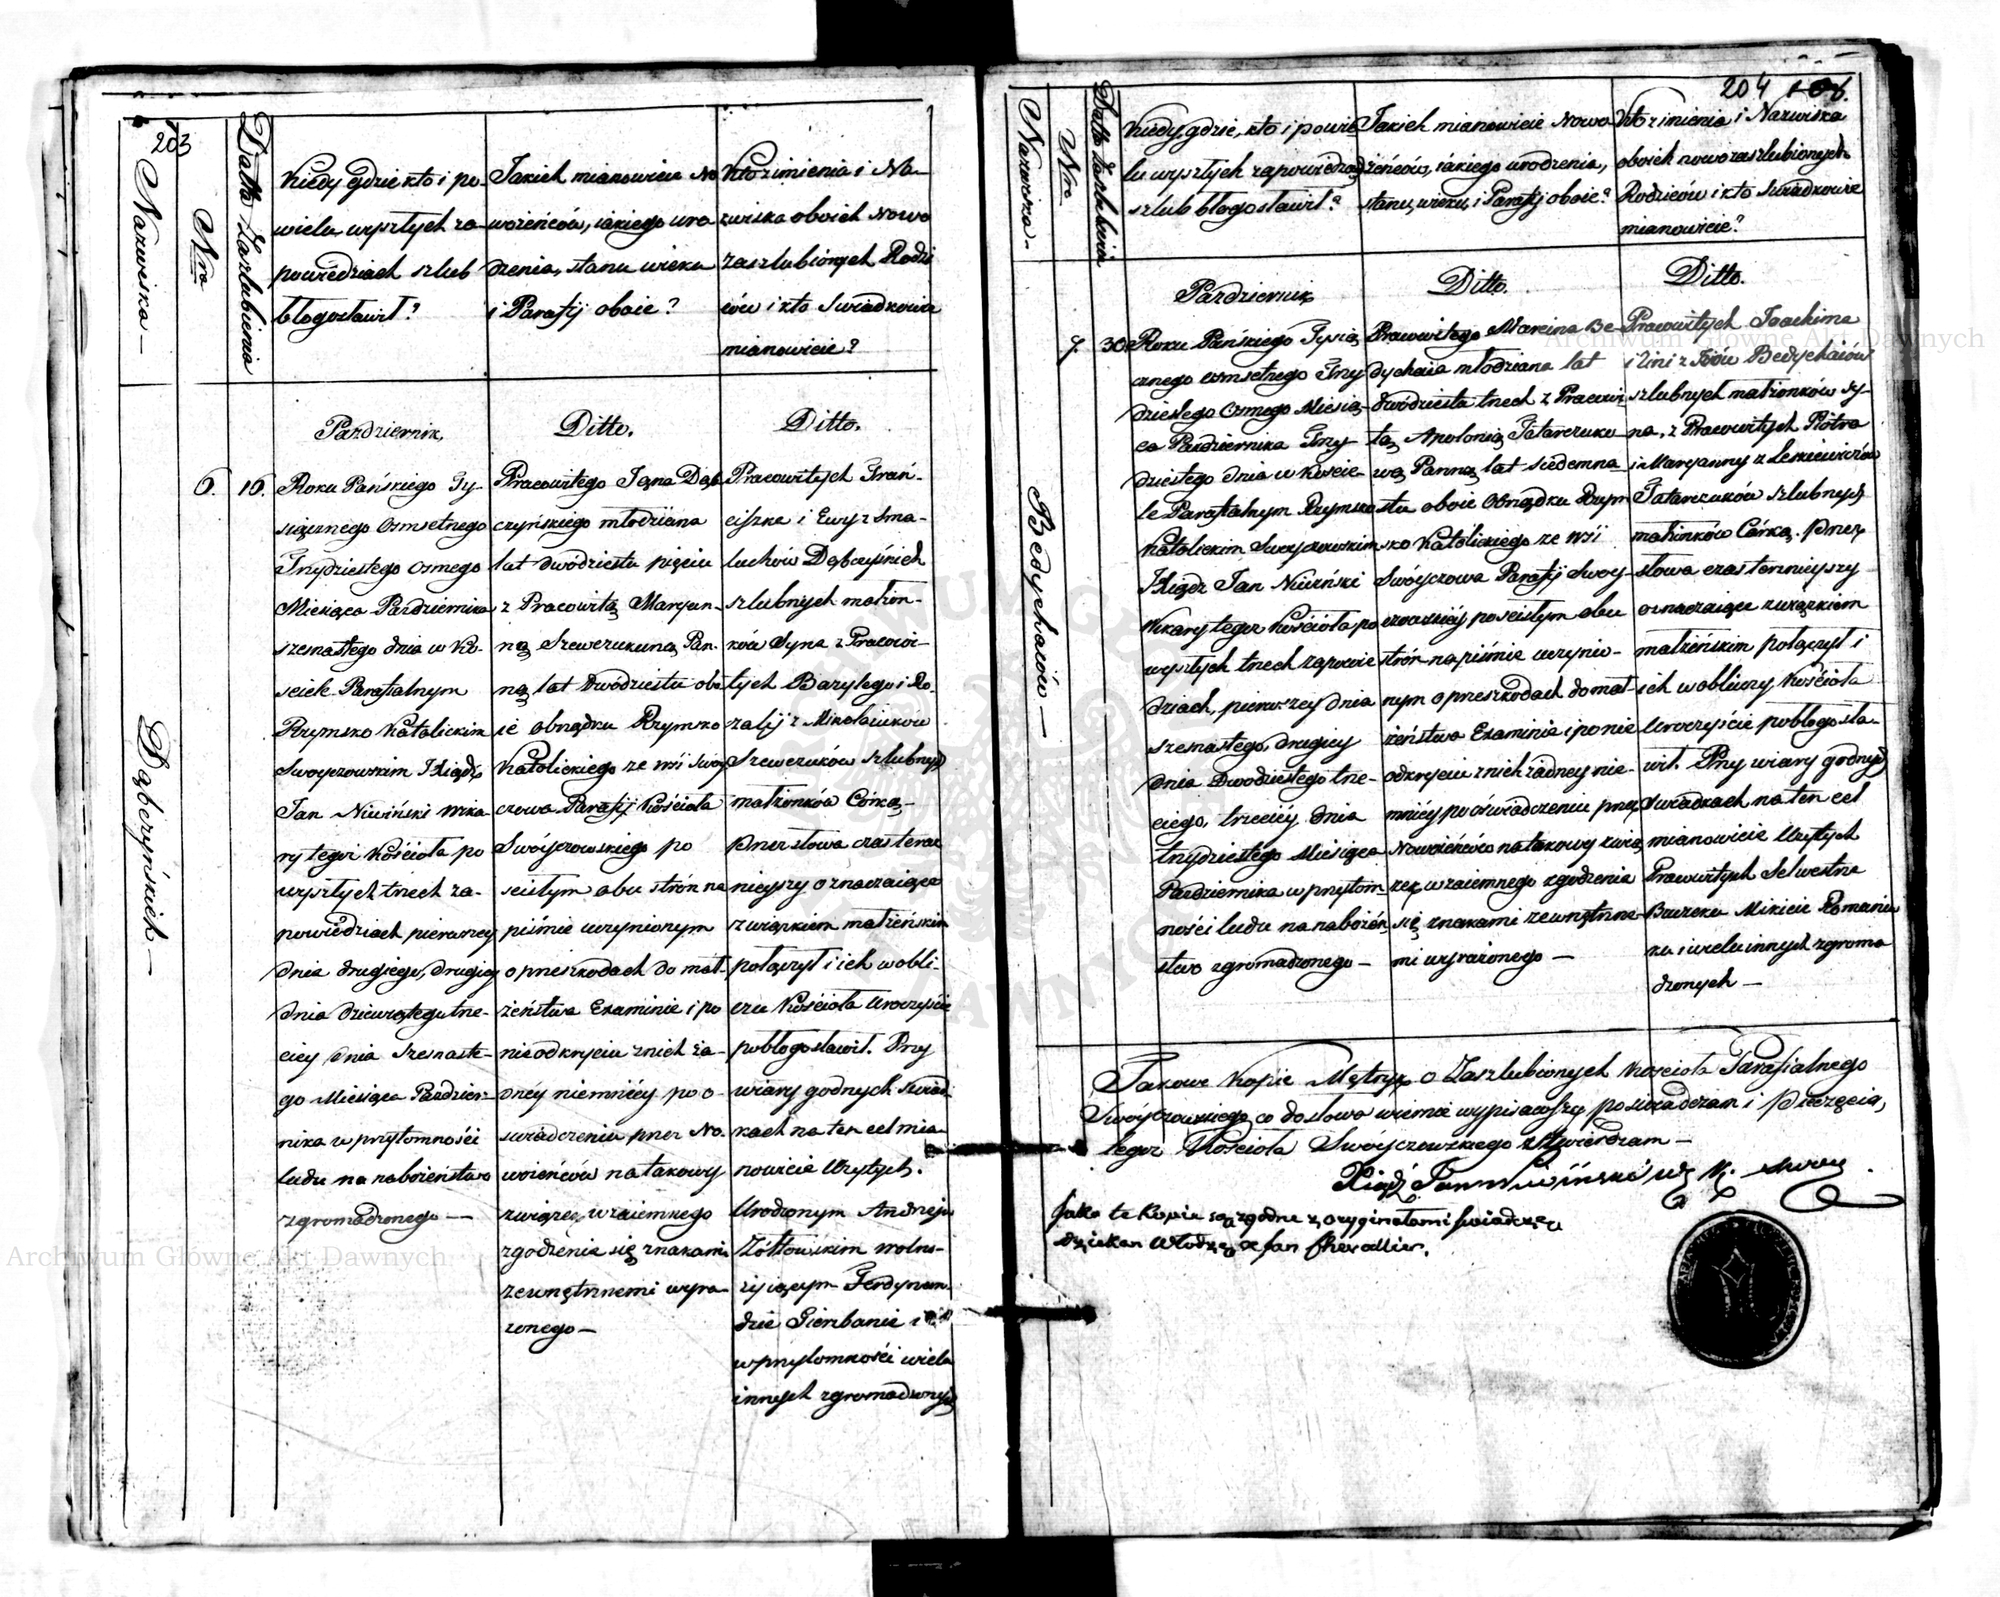 203
Nazwiska —
Nro
Datta Zaślubienia
Kiedy gdzie kto i po-
wielu wyszłych za-
powiedziach szlub
błogosławił?
Jakich mianowicie No
wożeńców, iakiego uro
dzenia, stanu wieku
i Parafij oboie?
Kto z imienia i Na-
zwiska oboich Nowo
zaszlubionych Rodzi
ców i kto Swiadkowie
mianowicie?
Dąbczyńskich —
6.
16.
Pazdziernik,
Roku Pańskiego Ty-
siącznego Osmsetnego
Trzydziestego osmego
Miesiąca Pazdziernika
szesnastego dnia w Ko-
sciele Parafialnym
Rzymsko Katolickim
Swoyczowskim Xiądz
Jan Niwiński Wika-
ry tegoż Kościoła po
wyszłych trzech za-
powiedziach pierwszey
dnia drugiego, drugiey
dnia dziewiątego trze-
ciey dnia szesnaste-
go Miesiąca Pazdzier-
nika w przytomności
ludu na nabożeństwo
zgromadzonego —
Ditto.
Pracowitego Jana Dąb
czyńskiego młodziana
lat dwódziestu pięciu
z Pracowitą Maryan-
ną Szewczukuną Pan-
ną lat Dwódziestu obo
ie obrządku Rzymsko
Katolickiego ze Wsi Swoy
czowa Parafij Kościoła
Swóyczowskiego po
scisłym obu strón na
piśmie uczynionym
o przeszkodach do mał-
żeństwa Examinie i po
nieodkryciu z nich ża-
dnéy niemniéy po o-
swiadczeniu przez No-
wożeńców na takowy
związek wzaiemnego
zgodzenia się znakami
zewnętrznemi wyra-
żonego —
Ditto.
Pracowitych Fran-
ciszka i Ewy z Sma-
luchów Dąbczyńskich
szlubnych małżon-
ków Syna z Pracowi-
tych Bazylego i Ro-
zalij z Mikołaiuków
Szewczuków szlubnych
małżonków Córką —
Przez słowa czas teraz
nieyszy oznaczaiące
związkiem małżeńskim
połączył i ich w obli-
czu Kościoła Uroczyście
pobłogosławił. Przy
wiary godnych Swiad-
kach na ten cel mia-
nowicie Użytych.
Urodzonym Andrzeju
Żółtowskim wolno-
żyiącym Ferdynan-
dzie Gierzbanie i
w przytomności wielu
innych zgromadzonych
204 106.
Nazwiska —
Nro
Datta Zaślubienia
Kiedy, gdzie, kto i po wie-
lu wyszłych zapowiedziach
szlub błogosławił?
Jakich mianowicie Nowo
żeńców, iakiego urodzenia,
stanu, wieku, i Parafij oboie?
Kto z imienia i Nazwiska
oboich nowozaszlubionych
Rodziców i kto Swiadkowie
mianowicie?
Bedychaiów —
7.
30
Pazdziernik
Roku Pańskiego Tysią
cznego osmsetnego Trzy
dziestego Osmego Miesią-
ca Pazdziernika Trzy-
dziestego dnia w Koscie-
le Parafialnym Rzymsko
Katolickim Swoyczowskim
Xiądz Jan Niwiński
Wikary tegoż Kościoła po
wyszłych trzech zapowie
dziach, pierwszey dnia
szesnastego, drugiey
dnia Dwódziestego trze-
ciego, trzeciéy dnia
trzydziestego Miesiąca
Pazdziernika w przytom-
ności ludu na nabożeń
stwo zgromadzonego —
Ditto.
Pracowitego Marcina Be-
dychaia młodziana lat
dwódziestu trzech z Pracowi
tą Apolonią Tatarczuko-
wą Panną lat siedemna
stu oboie Obrządku Rzym
sko Katolickiego ze Wsi
Swóyczowa Parafij Swoy-
czowskiéy po scisłym obu
strón na piśmie uczynio-
nym o przeszkodach do mał-
żeństwa Examinie i po nie
odkryciu z nich żadney nie-
mniéy po oświadczeniu przez
Nowożeńców na takowy zwią
zek wzaiemnego zgodzenia
się znakami zewnętrzne-
mi wyrażonego —
Ditto.
Pracowitych Joachima
Bedychaiów
szlubnych małżonków Sy-
na, z Pracowitych Piotra
i Maryanny z Leskiewiczów
Tatarczuków szlubnych
małżonków Córką. Przez
słowa czas teraznieyszy
oznaczaiące związkiem
małżeńskim połączył i
ich w obliczu Kościoła
Uroczyście pobłogosła-
wił. Przy wiary godnych
Swiadkach na ten cel
mianowicie Użytych
Pracowitych Selwestrze
Buczeku Mikicie Romaniu
ku i wielu innych zgroma
dzonych —
Takowe Kopie Metryk o Zaszlubionych Kościoła Parafialnego
Swoyczowskiego co do słowa wiernie wypisawszy poswiadczam i Pieczęcią,
tegoż Kościoła Swóyczowskiego ztwierdzam —
Xiądz Jan Niwiński W. K. Swoy
Jako te Kopie są zgodne z oryginałami swiadczę
dziekan Włodz. X Jan Chevallier.
Archiwum Główne Akt Dawnych
Archiwum Główne Akt Dawnych